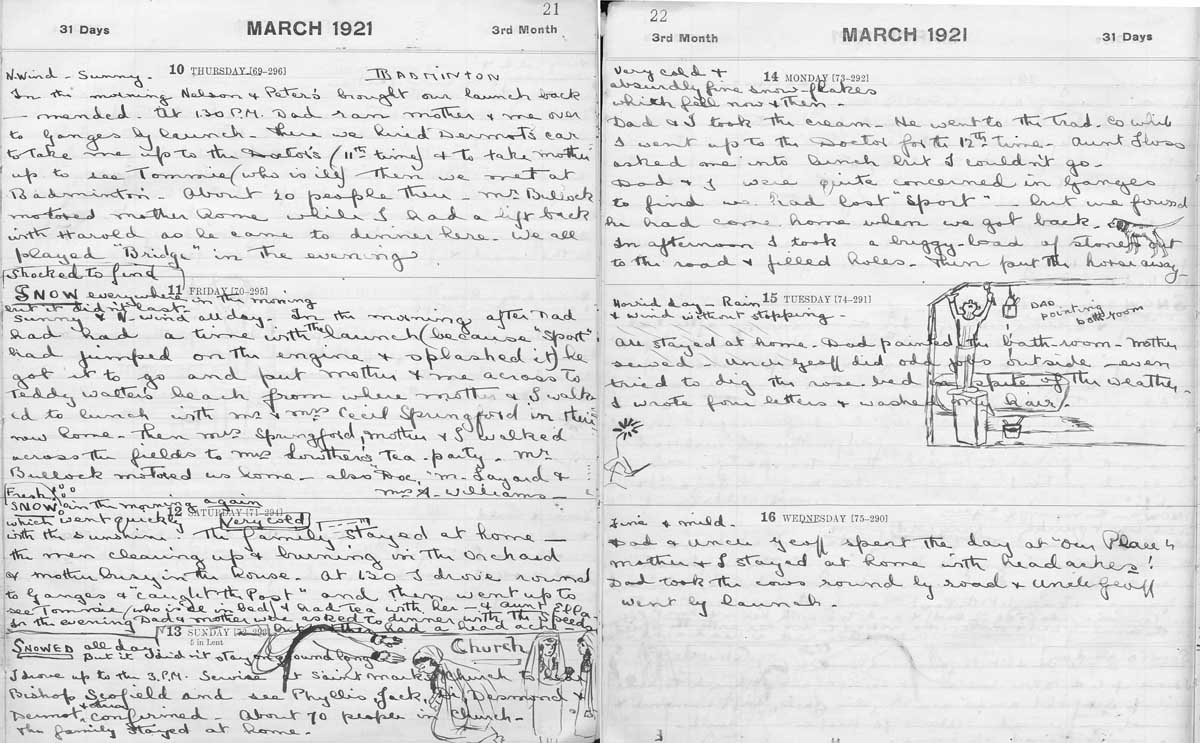 21
31 Days MARCH 1921 3rd Month
10 THURSDAY [69-296]
N. Wind - Sunny. BADMINTON
In the morning Nelson & Peters brought our launch back
- mended. At 1.30 P.M. Dad ran mother & me over
to Ganges by launch. There we hired Dermot's car
to take me up to the Doctor's (11th time) & to take mother
up to see Tommie (who is ill) Then we met at
Badminton - About 20 people there - Mr Bullock
motored mother home while I had a lift back
with Harold as he came to dinner here. We all
played "Bridge" in the evening
Shocked to find
11 FRIDAY [70-295]
SNOW everywhere in the morning
but it didn't last
Sunny & N. wind all day. In the morning after Dad
had had a time with the launch (because "Sport"
had jumped on the engine & splashed it) he
got it to go and put mother & me across to
Teddy Walter's beach from where mother & I walk-
ed to lunch with Mr & Mrs Cecil Springford in their
new home - Then Mrs Springford, mother & I walked
across the fields to Mrs tea-party. Mr
Bullock motored us home - also "Doc," M. Layard &
Mrs A. Williams -
Fresh
SNOW in the morning again
12 SATURDAY [71-294]
which went quickly Very cold
with the sunshine. The family stayed at home -
the men clearing up & burning in the Orchard
& mother busy in the house. At 1.30 I drove round
to Ganges & "caught the Post" and then went up to
see Tommie (who is ill in bed) & had tea with her - & Aunt Ella
In the evening Dad & mother were asked to dinner with the Speeds
but mother had a head ache
13 SUNDAY [72-293]
5 in Lent
SNOWED all day Church
But it didn't stay on ground long
I drove up to the 3 P.M. Service at Saint Marks Church to hear
Bishop Scofield and see Phyllis, Jack, Desmond &
Dermot confirmed - About 70 people in Church -
The family stayed at home.
22
3rd Month MARCH 1921 31 Days
14 MONDAY [73-292]
Very cold &
absurdly fine snow-flakes
which fell now & then -
Dad & I took the cream - He went to the Trad. Co while
I went up to the Doctor for the 12th time - Aunt Floss
asked me into lunch but I couldn't go -
Dad & I were quite concerned in Ganges
to find we had lost "Sport" - but we found
he had come home when we got back.
In afternoon I took a buggy-load of stones out
to the road & filled holes. Then put the horse away -
15 TUESDAY [74-291]
Horrid day - Rain
& wind without stopping -
DAD
painting
bath room
All stayed at home. Dad painted the bath-room - Mother
sewed - Uncle Geoff did odd jobs outside - even
tried to dig the rose bed in spite of the weather.
I wrote four letters & washed my hair
16 WEDNESDAY [75-290]
Fine & mild.
Dad & Uncle Geoff spent the day at "Our Place"
Mother & I stayed at home with headaches!
Dad took the cows round by road & Uncle Geoff
went by launch.